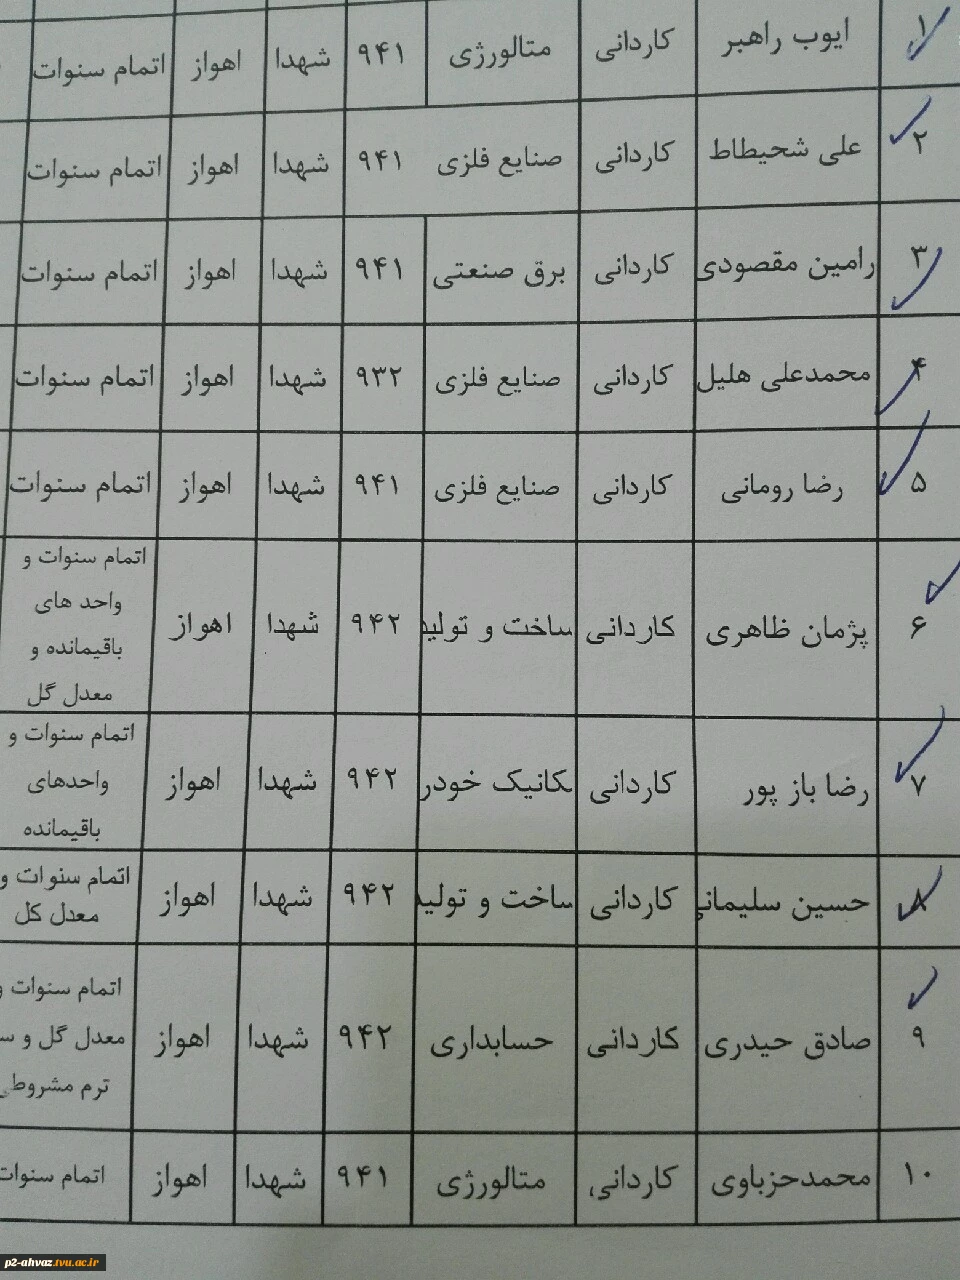 ۱ ایوب راهبر کاردانی متالورژی ۹۴۱ شهدا اهواز اتمام سنوات
۲ علی شحیطاط کاردانی صنایع فلزی ۹۴۱ شهدا اهواز اتمام سنوات
۳ رامین مقصودی کاردانی برق صنعتی ۹۴۱ شهدا اهواز اتمام سنوات
۴ محمدعلی هلیل کاردانی صنایع فلزی ۹۳۲ شهدا اهواز اتمام سنوات
۵ رضا رومانی کاردانی صنایع فلزی ۹۴۱ شهدا اهواز اتمام سنوات
۶ پژمان ظاهری کاردانی ساخت و تولید ۹۴۲ شهدا اهواز اتمام سنوات و
واحد های
باقیمانده و
معدل گل
۷ رضا باز پور کاردانی مکانیک خودر ۹۴۲ شهدا اهواز اتمام سنوات و
واحدهای
باقیمانده
۸ حسین سلیمانی کاردانی ساخت و تولید ۹۴۲ شهدا اهواز اتمام سنوات و
معدل کل
۹ صادق حیدری کاردانی حسابداری ۹۴۲ شهدا اهواز اتمام سنوات و
معدل گل و
ترم مشروطی
۱۰ محمدحزباوی کاردانی متالورژی ۹۴۱ شهدا اهواز اتمام سنوات
p2-ahvaz.tvu.ac.ir